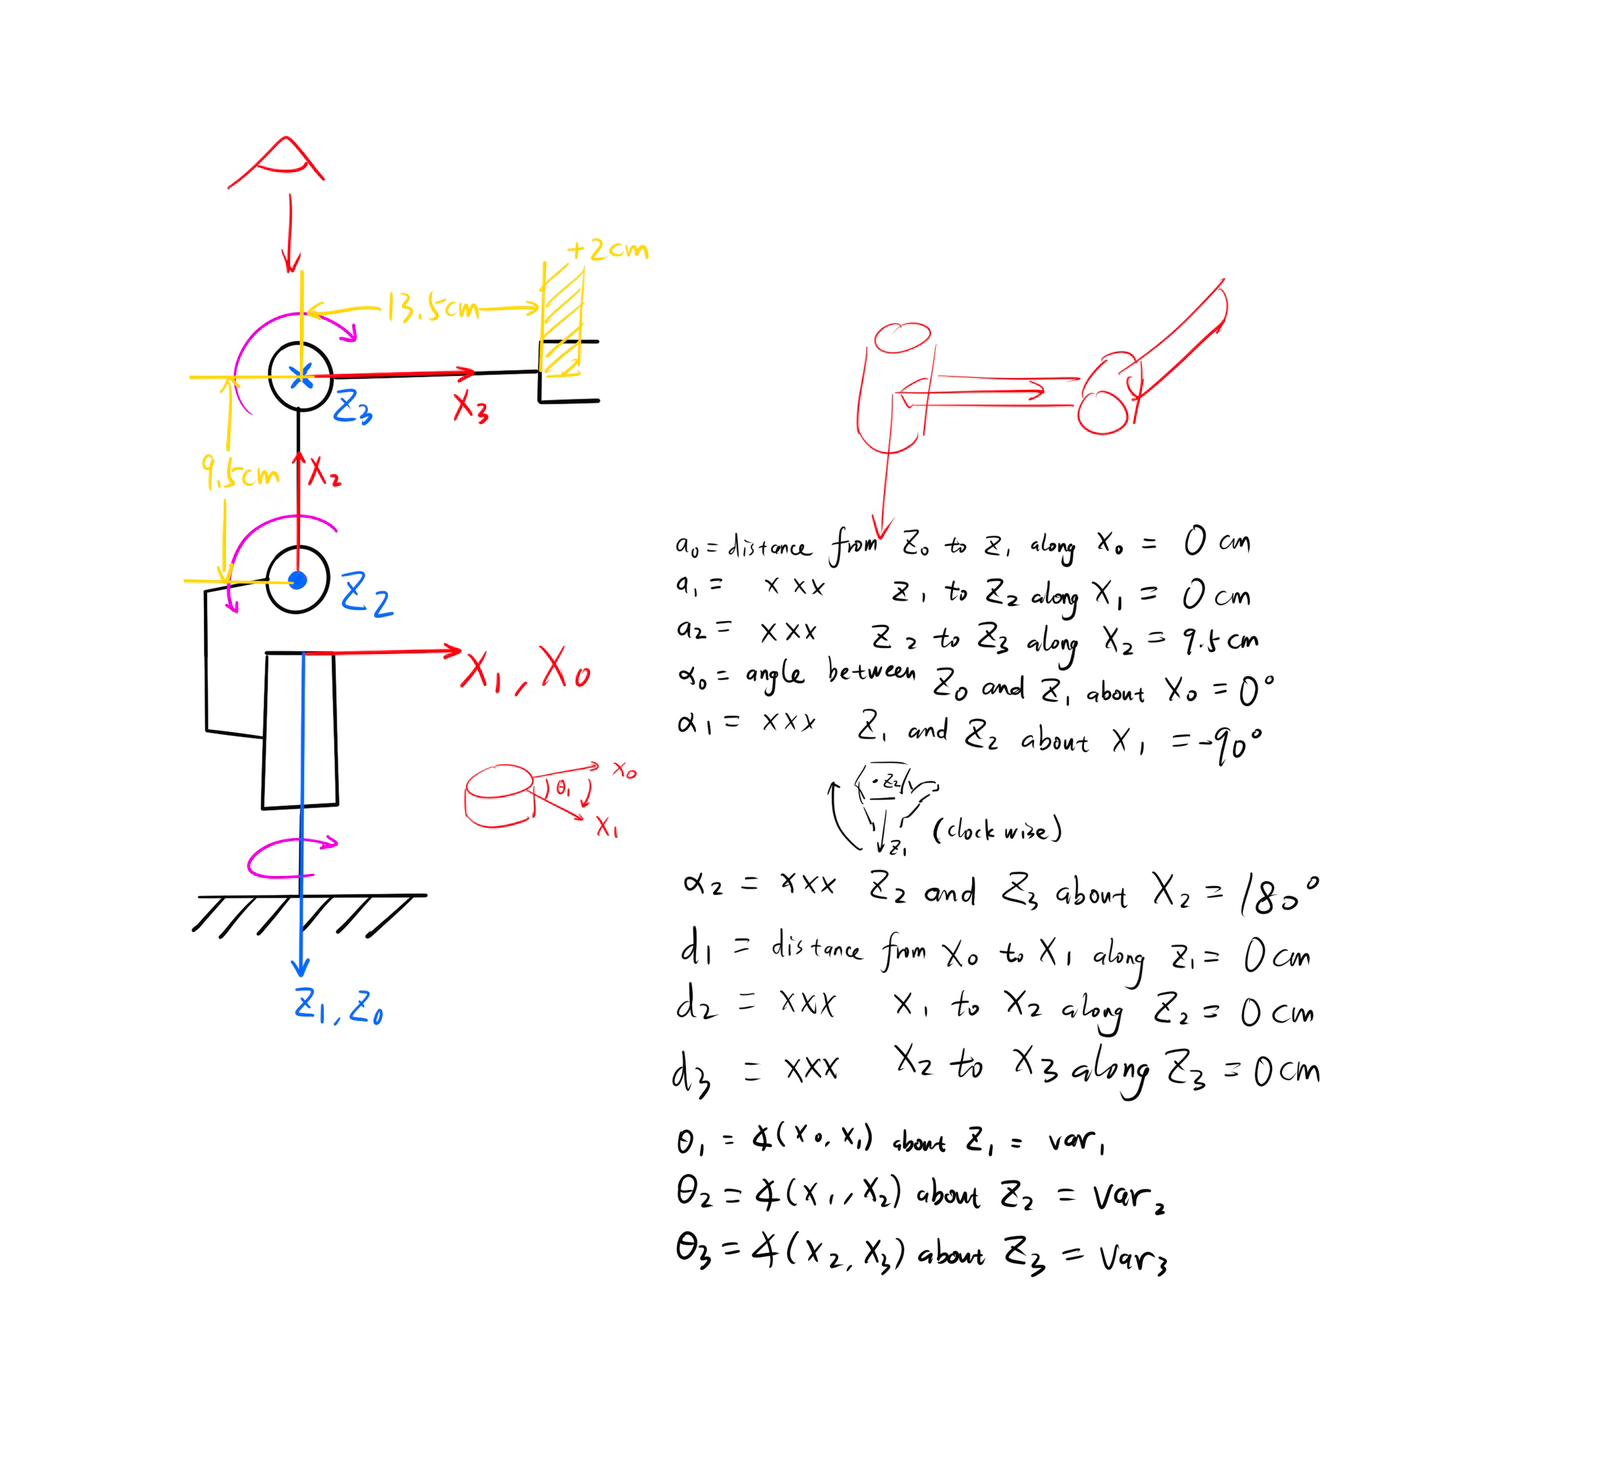 +2cm
13.5cm
Z3
X3
9.5cm
X2
Z2
X1, X0
X0
θ1
X1
Z1, Z0
a0 = distance from Z0 to Z1 along X0 = 0 cm
a1 = xxx Z1 to Z2 along X1 = 0 cm
a2 = xxx Z2 to Z3 along X2 = 9.5 cm
α0 = angle between Z0 and Z1 about X0 = 0°
α1 = xxx Z1 and Z2 about X1 = -90°
Z2
Z1
(clockwise)
α2 = xxx Z2 and Z3 about X2 = 180°
d1 = distance from X0 to X1 along Z1 = 0 cm
d2 = xxx X1 to X2 along Z2 = 0 cm
d3 = xxx X2 to X3 along Z3 = 0 cm
θ1 = ∡(X0, X1) about Z1 = var1
θ2 = ∡(X1, X2) about Z2 = var2
θ3 = ∡(X2, X3) about Z3 = var3